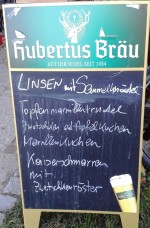 Hubertus Bräu
AUS IHR WOHL SEIT 1454
LINSEN mit Semmelknödel
Topfenmarillenstrudel
Zwetschken od Apfelkuchen
Marillenkuchen
Kaiserschmarren
mit
Zwetschkenröster